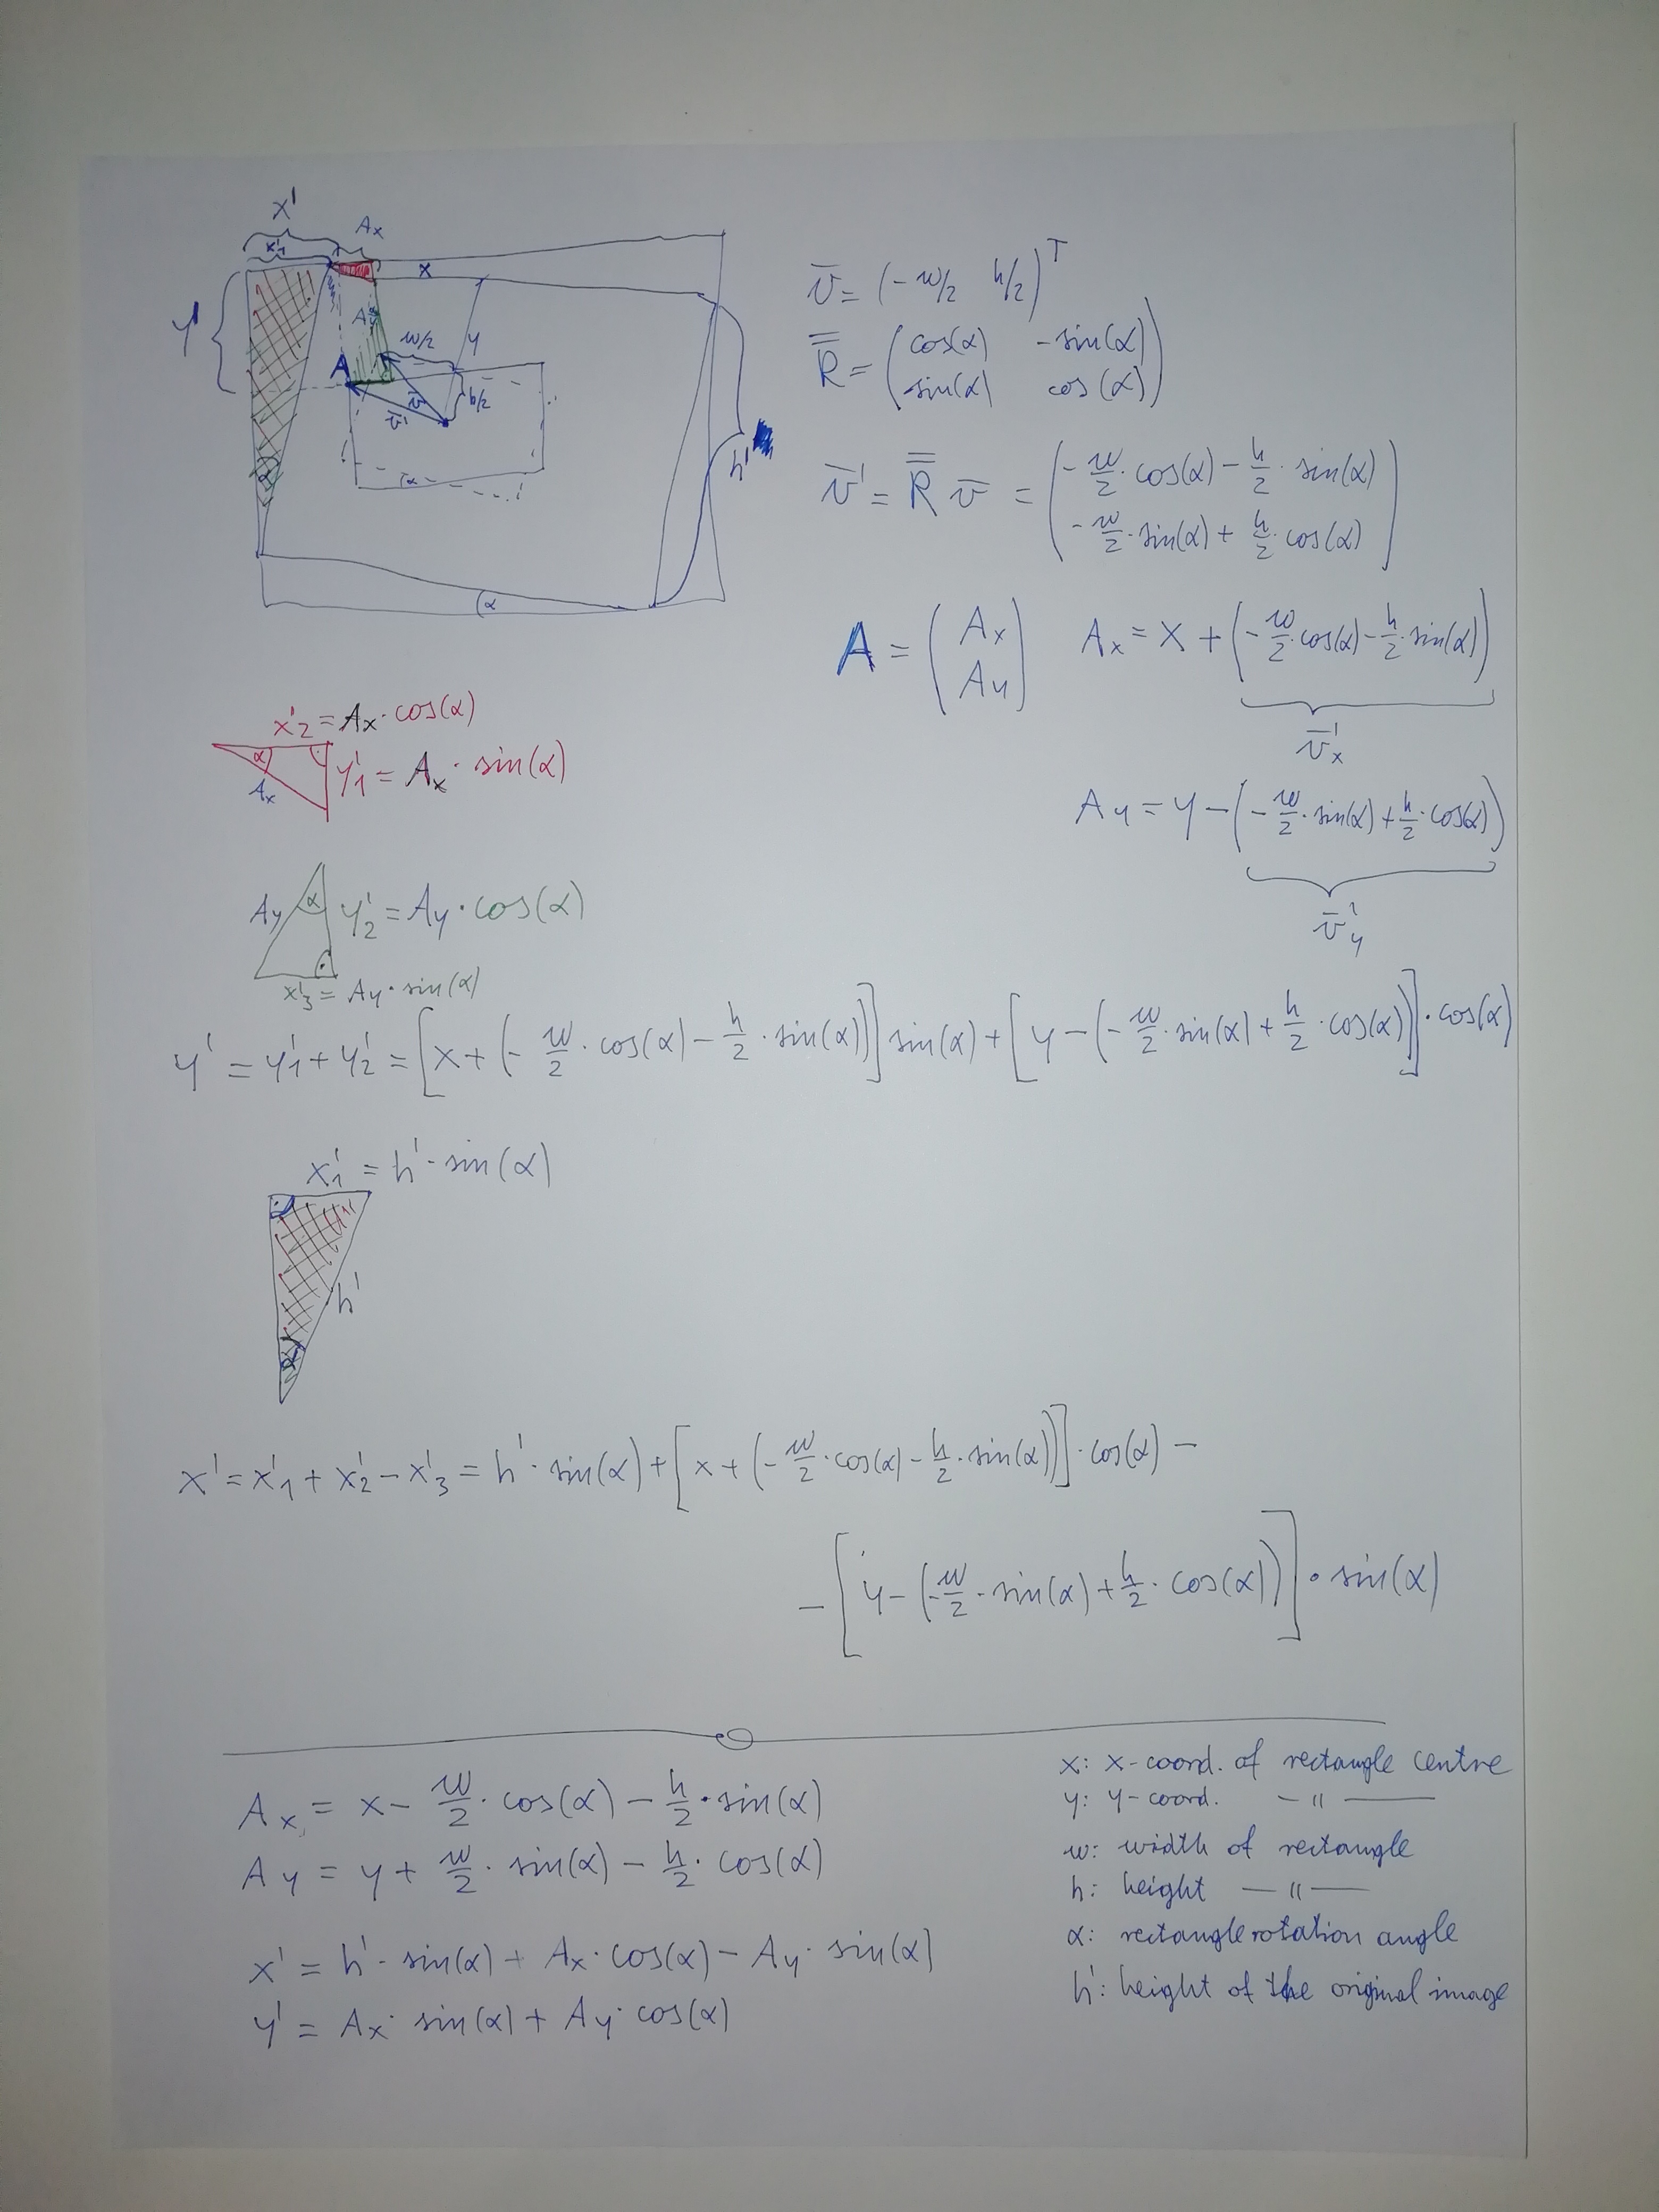 x'
Ax
x'1
x
y'
Ay
w/2
y
A
h/2
v̄
v̄'
h'
α
α
α
v̄ = (-w/2 h/2)ᵀ
R̿ = (cos(α) -sin(α)
sin(α) cos(α))
v̄' = R̿ v̄ = (-w/2 · cos(α) - h/2 · sin(α)
-w/2 · sin(α) + h/2 · cos(α))
A = (Ax
Ay)
Ax = x + (-w/2 · cos(α) - h/2 · sin(α))
v̄'x
Ay = y - (-w/2 · sin(α) + h/2 · cos(α))
v̄'y
x'2 = Ax · cos(α)
α
Ax
y'1 = Ax · sin(α)
Ay
α
y'2 = Ay · cos(α)
x'3 = Ay · sin(α)
y' = y'1 + y'2 = [x + (-w/2 · cos(α) - h/2 · sin(α))] sin(α) + [y - (-w/2 · sin(α) + h/2 · cos(α))] · cos(α)
x'1 = h' · sin(α)
h'
α
x' = x'1 + x'2 - x'3 = h' · sin(α) + [x + (-w/2 · cos(α) - h/2 · sin(α))] · cos(α) -
- [y - (-w/2 · sin(α) + h/2 · cos(α))] · sin(α)
Ax = x - w/2 · cos(α) - h/2 · sin(α)
Ay = y + w/2 · sin(α) - h/2 · cos(α)
x' = h' · sin(α) + Ax · cos(α) - Ay · sin(α)
y' = Ax · sin(α) + Ay · cos(α)
x: x-coord. of rectangle centre
y: y-coord. — 〃 —
w: width of rectangle
h: height — 〃 —
α: rectangle rotation angle
h': height of the original image